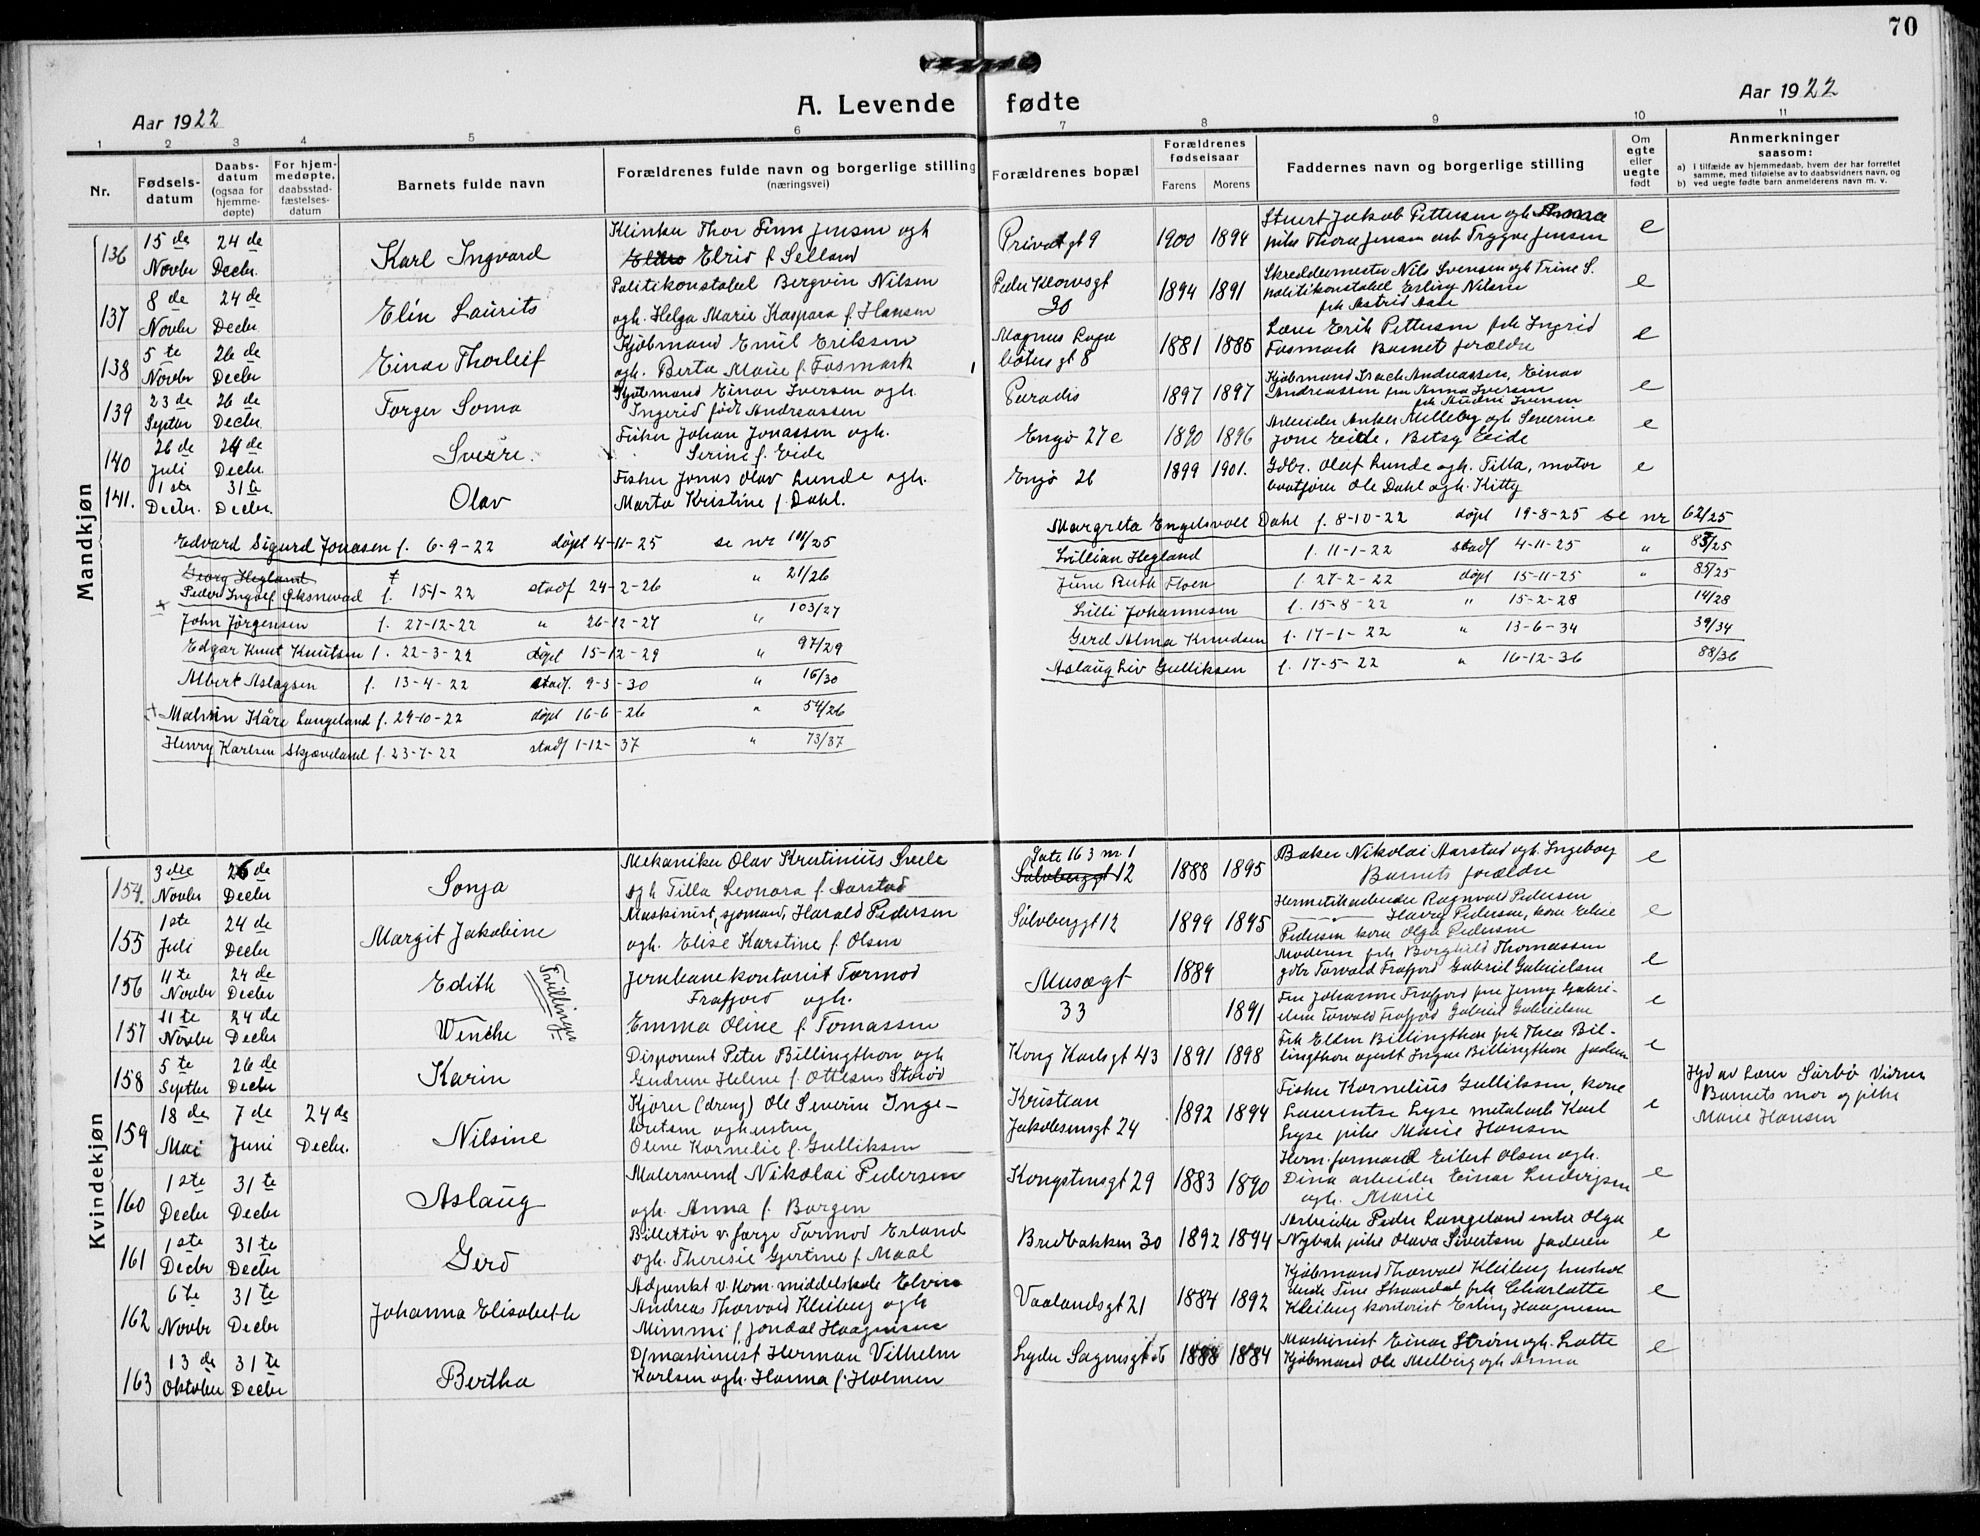 70
Aar 1922
A. Levende fødte
Aar 1922
1 2 3 4 5 6 7 8 9 10 11
Nr.
Fødsels-
datum
Daabs-
datum
(ogsaa for
hjemme-
døpte)
For hjem-
medøpte,
daabsstad-
fæstelses-
datum
Barnets fulde navn
Forældrenes fulde navn og borgerlige stilling
(næringsvei)
Forældrenes bopæl
Forældrenes
fødselsaar
Farens Morens
Faddernes navn og borgerlige stilling
Om
egte
eller
uegte
født
Anmerkninger
saasom:
a) I tilfælde av hjemmedaab, hvem der har forrettet
samme, med tilføielse av to daabsvidners navn, og
b) ved uegte fødte barn anmelderens navn m. v.
Mandkjøn
136 15 de Novbr 24 de Decbr. Karl Ingvard
Klinker Thor Finn Jensen ogh
Elrid f. Selland
Privatgt 9 1900 1894
Stuert Jakob Pettersen ogh
pike Thora Jensen arb Trygve Jensen e
137 8 de Novbr 24 de Decbr. Elin Laurits
Politikonstabel Bergvin Nilsen
ogh. Helga Marie Kaspara f. Hansen
Peder Klowsgt
30 1894 1891
Skreddermester Nils Svensen ogh Trine S.
politikonstabel Erling Nilsen
frk Astrid Aase e
138 5 te Novbr 26 de Decbr Einar Thorleif
Kjøbmand Emil Eriksen
ogh. Berta Marie f. Fosmark
Magnus Laga
bøtersgt 8 1881 1885
Lærer Erik Pettersen frk Ingrid
Fosmark Barnet forældre e
139 23 de Septbr 26 de Decbr. Torger Soma
Kjøbmand Einar Iversen ogh
Ingerid født Andreassen
Paradis 1897 1897
Kjøbmand Isach Andreassen, Einar
Andreassen fru Anna Iversen
frk Audni Iversen e
140 26 de Juli 24 de Decbr. Sverre.
Fisker Johan Jonassen ogh.
Serine f. Eide
Engø 27 e 1890 1896
Arbeider Anker Milleby ogh Severine
Jone Eide, Betsy Eide e
141. 1 ste Decbr. 31 te Decbr. Olav
Fisker Jonas Olav Lunde ogh.
Marta Kristine f. Dahl.
Engø 26 1899 1901.
Gdbr. Olaf Lunde ogh. Tilla, motor
baatfører Ole Dahl ogh. Kitty e
Edvard Sigurd Jonasen f. 6-9-22 døpt 4-11-25 se nr 101/25
Georg Hegland
Peder Ingolf Øksnevad f. 15-1-22 stadf 24-2-26 " 21/26
John Jørgensen f. 27-12-22 " 26-12-27 " 103/27
Edgar Knut Knutsen f. 22-3-22 døpt 15-12-29 " 97/29
Albert Aslagsen f. 13-4-22 stadf. 9-3-30 " 16/30
Malvin Kåre Langeland f. 29-10-22 døpt 16-6-26 " 54/26
Henry Karlsen Skjæveland f. 23-7-22 stadf 1-12-37 " 73/37
Margreta Engelsvoll Dahl f. 8-10-22 døpt 19-8-25 se nr 62/25
Lillian Hegland f. 11-1-22 stadf 4-11-25 " 83/25
June Ruth Floen f. 27-2-22 døpt 15-11-25 " 85/25
Lilli Johannesen f. 15-8-22 " 15-2-28 14/28
Gerd Alma Knudsen f. 17-1-22 " 13-6-34 39/34
Aslaug Liv Gulliksen f. 17-5-22 " 16-12-36 88/36
Kvindekjøn
154. 3 die Novbr 26 de Decbr Sonja
Mekaniker Olav Kristinius Svele
ogh Tilla Leonora f. Aarstad
Gate 163 nr. 1
Sølvberggt 12 1888 1895
Baker Nikolai Aarstad ogh. Ingeborg
Barnets forældre e
155 1ste Juli 24 de Decbr Margit Jakobine
Maskinist, sjømand, Harald Pedersen
ogh. Elise Karstine f. Olsen
Sølvberggt 12 1899 1895
Hermetikarbeider Ragnvald Pedersen
Harry Pedersen, kone Elise
Pedersen kone Olga Pedersen e
156 11 te Novbr 24 de Decbr Edith
Tvillinger
Jernbanekontorist Tormod
Frafjord ogh.
Musægt 1889
Moderen frk Borghild Thomassen
gdbr Torvald Frafjord Gabriel Gabrielsen e
157 11 te Novbr 24 de Decbr Wenche
Emma Oline f. Tomassen
33 1891
Fru Johanne Frafjord fru Jenny Gabri-
elsen Torvald Frafjord Gabriel Gabrielsen e
158 5 te Septbr 26 de Decbr Karin
Disponent Peter Billingthon ogh
Gudrun Helene f. Ottesen Storød
Kong Karlsgt 43 1891 1898
Frk Ellen Billingthon frk Thea Bil-
lingthon agent Ingar Billingthon faderen e
159 18 de Mai 7 de Juni 24 de Decbr. Nilsine
Kjører (dreng) Ole Severin Inge-
bretsen og hustru
Oline Kornelie f. Gulliksen
Kristian
Jakobsensgt 24 1892 1894
Fisker Kornelius Gulliksen, kone
Laurentse Lyse metalarb Karl
Lyse pike Marie Hansen e
Hjd av Lærer Sørbø Vidner
Barnets mor og pike
Marie Hansen
160 1ste Decbr 31 te Decbr Aslaug
Malersvend Nikolai Pedersen
ogh. Anna f. Borgen
Kongstensgt 29 1883 1890
Herm. formand Eilert Olsen ogh.
Dina arbeider Einar Ludvigsen
ogh. Marie e
161 1ste Decbr 31 te Decbr Gerd
Billettør v. færge Tormod Erland
ogh. Theresie Gjertine f. Maal
Bredbakken 30 1892 1894
Arbeider Peder Langeland enke Olga
Nybak pike Olava Sivertsen faderen e
162 6 te Novbr 31 te Decbr Johanna Elisabeth
Adjunkt v. Kom. middelskole Elvin
Andreas Thorvald Kleiberg ogh
Mimmi f. Jondal Haagensen
Vaalandsgt 21 1884 1892
Kjøbmand Thorvald Kleiberg hushol
derske Tine Skaardal frk Charlotte
Kleiberg kontorist Erling Haagensen e
163 13 de Oktober 31 te Decbr Bertha
D/maskinist Herman Vilhelm
Karlsen ogh. Hanna f. Holmen
Lyder Sagensgt 1888 1884
Maskinist Einar Strøm ogh. Lotte
Kjøbmand Ole Melberg ogh Anna e